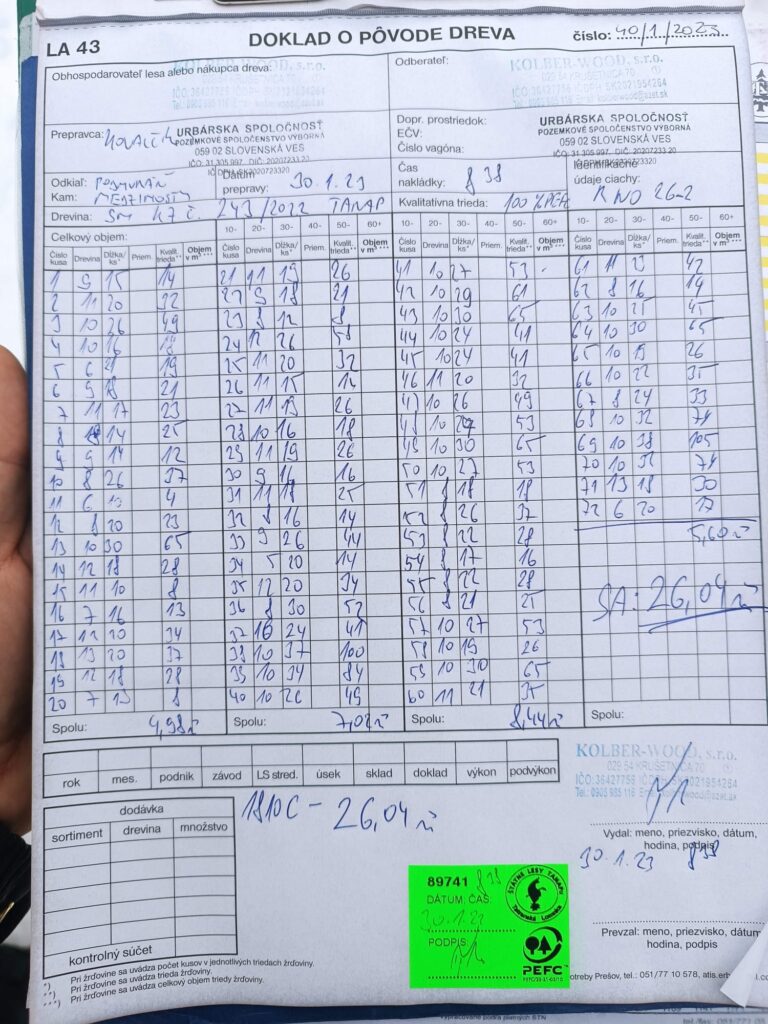 LA 43
DOKLAD O PÔVODE DREVA
číslo: 40/1/2023
Obhospodarovateľ lesa alebo nákupca dreva:
KOLBER-WOOD, s.r.o.
Odberateľ:
KOLBER-WOOD, s.r.o.
029 54 KRUŠETNICA 70
Prepravca:
URBÁRSKA SPOLOČNOSŤ
POZEMKOVÉ SPOLOČENSTVO VÝBORNÁ
059 02 SLOVENSKÁ VES
IČO: 31 305 997, DIČ: 2020723320
Dopr. prostriedok:
EČV:
Číslo vagóna:
URBÁRSKA SPOLOČNOSŤ
POZEMKOVÉ SPOLOČENSTVO VÝBORNÁ
059 02 SLOVENSKÁ VES
Odkiaľ:
Kam: MEDZIMOSTY
Dátum prepravy: 30.1.23
Čas nakládky: 8 38
Identifikačné údaje ciachy: R NO 26-2
Drevina: SM 243/2022 TANAP
Kvalitatívna trieda: 100 % PEFC
Celkový objem:
10- 20- 30- 40- 50- 60+
10- 20- 30- 40- 50- 60+
10- 20- 30- 40- 50- 60+
Číslo kusa Drevina Dĺžka/ks* Priem. Kvalit. trieda** Objem v m³***
1 9 15 14
2 11 20 32
3 10 26 49
4 10 16 18
5 6 21 19
6 9 18 21
7 11 17 23
8 14 25
9 9 14 12
10 8 26 37
11 6 13 4
12 8 20 23
13 10 30 65
14 12 18 28
15 11 10 8
16 7 16 13
17 12 20 34
18 13 20 37
19 12 18 28
20 7 13 8
Spolu: 4,98
Číslo kusa Drevina Dĺžka/ks* Priem. Kvalit. trieda** Objem v m³***
21 11 19 26
22 9 18 21
23 8 12 8
24 12 26 58
25 11 20 32
26 11 15 14
27 11 19 26
28 10 16 18
29 11 19 26
30 9 16 16
31 11 18 25
32 8 16 14
33 9 26 44
34 5 20 14
35 12 20 34
36 8 30 52
37 10 24 41
38 10 37 100
39 10 34 84
40 10 26 49
Spolu: 7,02
Číslo kusa Drevina Dĺžka/ks* Priem. Kvalit. trieda** Objem v m³***
41 10 27 53
42 10 29 61
43 10 30 65
44 10 24 41
45 10 24 41
46 11 20 32
47 10 26 49
48 10 27 53
49 10 30 65
50 10 27 53
51 8 18 18
52 8 26 37
53 8 22 28
54 8 17 16
55 8 22 28
56 8 21 25
57 10 27 53
58 10 19 26
59 10 30 65
60 11 21 35
Spolu: 8,44
Číslo kusa Drevina Dĺžka/ks* Priem. Kvalit. trieda** Objem v m³***
61 11 23 42
62 8 16 14
63 10 25 45
64 10 30 65
65 10 19 26
66 10 22 35
67 8 24 33
68 10 32 74
69 10 38 105
70 10 32 74
71 13 18 30
72 6 20 17
5,60
SA: 26,04
Spolu:
rok mes. podnik závod LS stred. úsek sklad doklad výkon podvýkon
KOLBER-WOOD, s.r.o.
029 54 KRUŠETNICA 70
dodávka
sortiment drevina množstvo
kontrolný súčet
1810C - 26,04
Vydal: meno, priezvisko, dátum,
hodina, podpis
30.1.23 8 38
89741 8 38
DÁTUM: ČAS:
PODPIS:
ŠTÁTNE LESY TANAPU
Tatranská Lomnica
PEFC
Prevzal: meno, priezvisko, dátum
hodina, podpis
*) Pri žrďovine sa uvádza počet kusov v jednotlivých triedach žrďoviny.
**) Pri žrďovine sa uvádza trieda žrďoviny.
***) Pri žrďovine sa uvádza celkový objem triedy žrďoviny.
otreby Prešov, tel.: 051/77 10 578